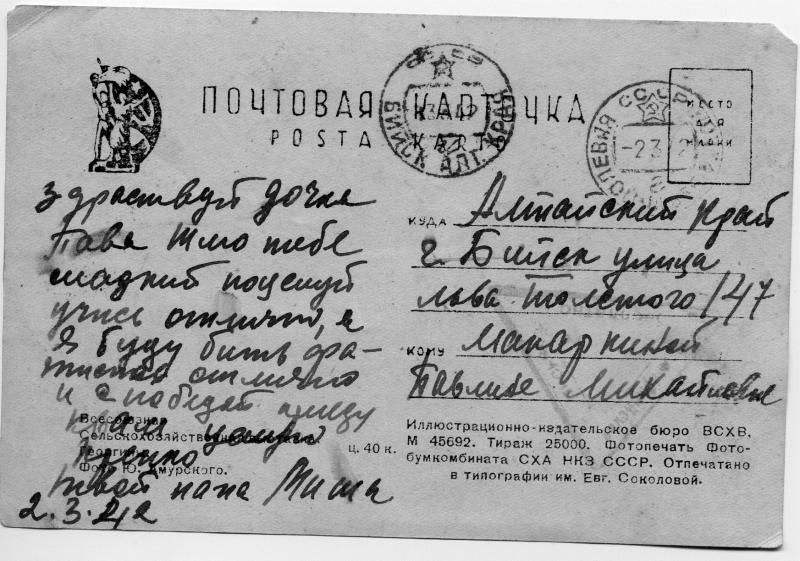 ПОЧТОВАЯ КАРТОЧКА
POSTA KARTA
БИЙСК АЛТ. КРАЙ
ПОЛЕВАЯ СССР
-2 3
МЕСТО
ДЛЯ
МАРКИ
здраствуй дочка
Пава Шлю тебе
сладкий поцелуй
учись отлично, а
Я буду бить фа-
шистов отлично
и с победой приеду
к вам целую
крепко
твой папа Миша
2.3.42
КУДА Алтайский край
г. Бийск улица
льва Толстого 147
КОМУ Макаркиной
Павлине Михайловне
Всесоюзная
Сельскохозяйственная
Георгин
Фото Ю. Амурского.
ц. 40 к.
Иллюстрационно-издательское бюро ВСХВ,
М 45692. Тираж 25000. Фотопечать Фото-
бумкомбината СХА НКЗ СССР. Отпечатано
в типографии им. Евг. Соколовой.